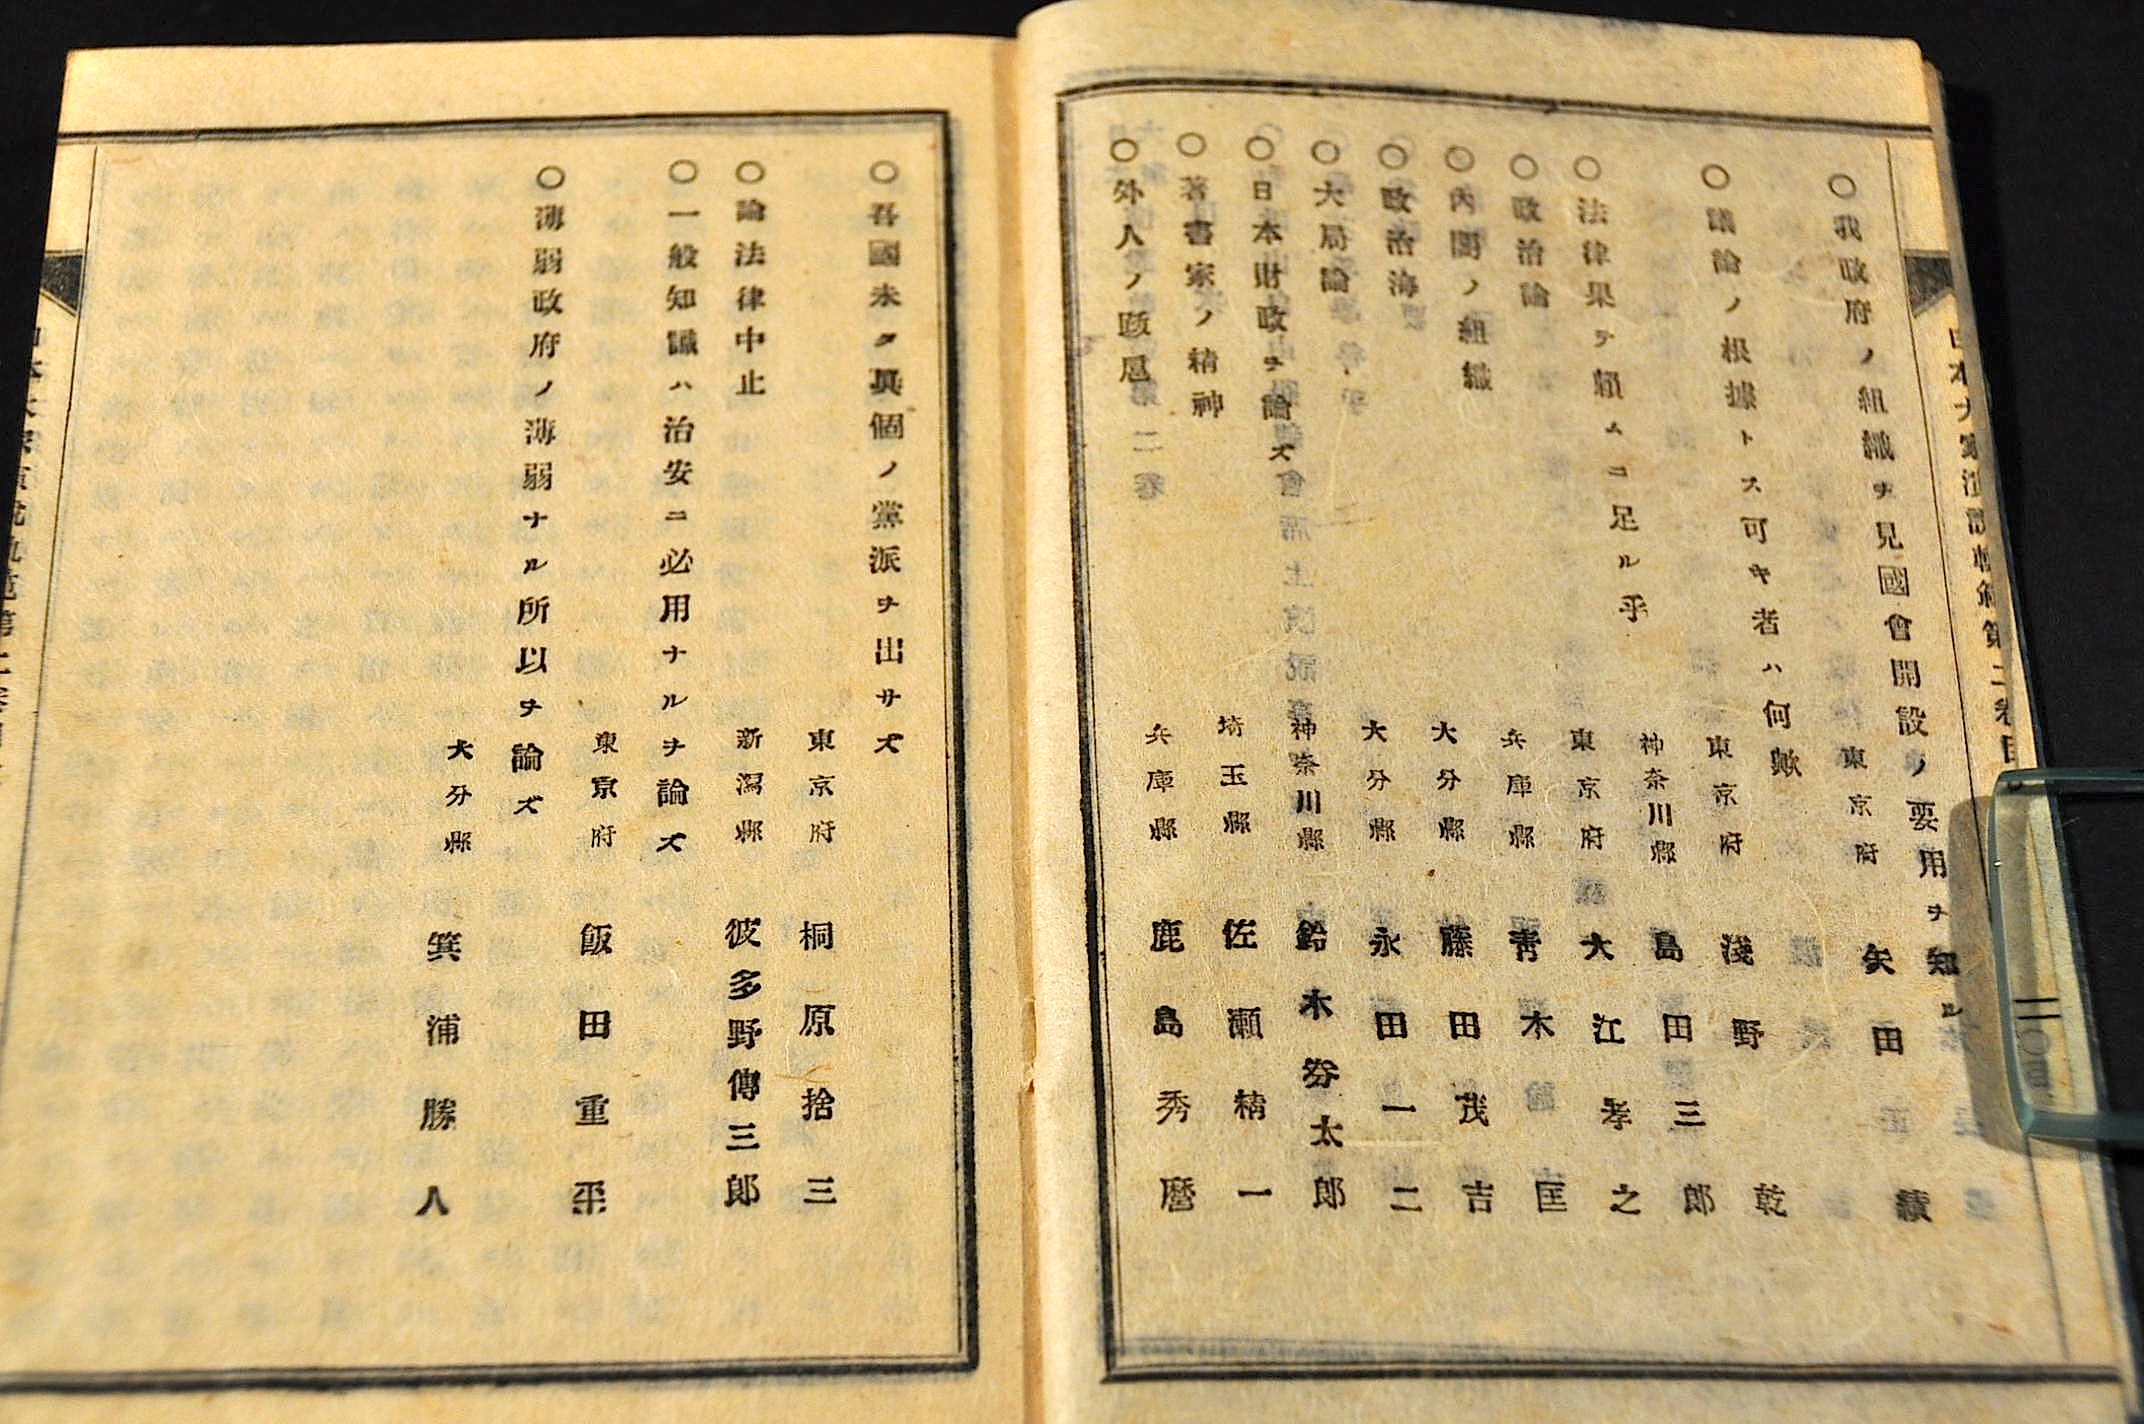 ○我政府ノ組織ヲ見國會開設ノ要用ヲ知ル
東京府 矢田績
○議論ノ根據トス可キ者ハ何歟
東京府 淺野乾
○法律果テ頼ムニ足ル乎
神奈川縣 島田三郎
○政治論
東京府 大江孝之
○内閣ノ組織
兵庫縣 青木匡
○政治海
大分縣 藤田茂吉
○大局論
大分縣 永田一二
○日本財政ヲ論ズ
神奈川縣 鈴木券太郎
○著書家ノ精神
埼玉縣 佐瀬精一
○外人ノ跋扈
兵庫縣 鹿島秀麿
○吾國未タ眞個ノ黨派ヲ出サズ
東京府 桐原捨三
○論法律中止
新潟縣 彼多野傳三郎
○一般知識ハ治安ニ必用ナルヲ論ズ
東京府 飯田重平
○薄弱政府ノ薄弱ナル所以ヲ論ズ
大分縣 箕浦勝人